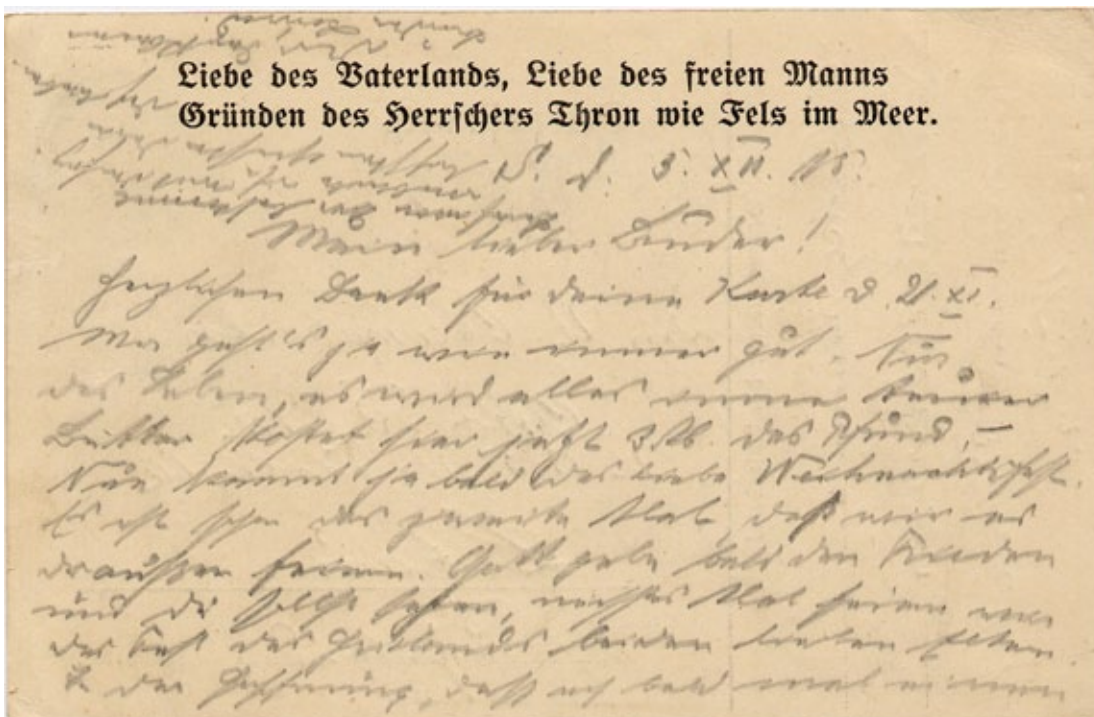 Liebe des Vaterlands, Liebe des freien Manns
Gründen des Herrschers Thron wie Fels im Meer.
d. 5. XII. 15.
Mein lieber Bruder!
Herzlichen Dank für deine Karte v. 21. XI.
Mir geht's ja wie immer gut. Nur
das Leben, es wird alles immer teurer
Butter kostet hier jetzt 3 M. das Pfund. –
Nun kommt ja bald das liebe Weihnachtsfest.
Es ist schon das zweite Mal daß wir es
draußen feiern. Gott gebe bald den Frieden
und du sollst sehen, nächstes Mal feiern wir
das Fest des Heilands bei den lieben Eltern.
In der Hoffnung, daß ich bald mal einen